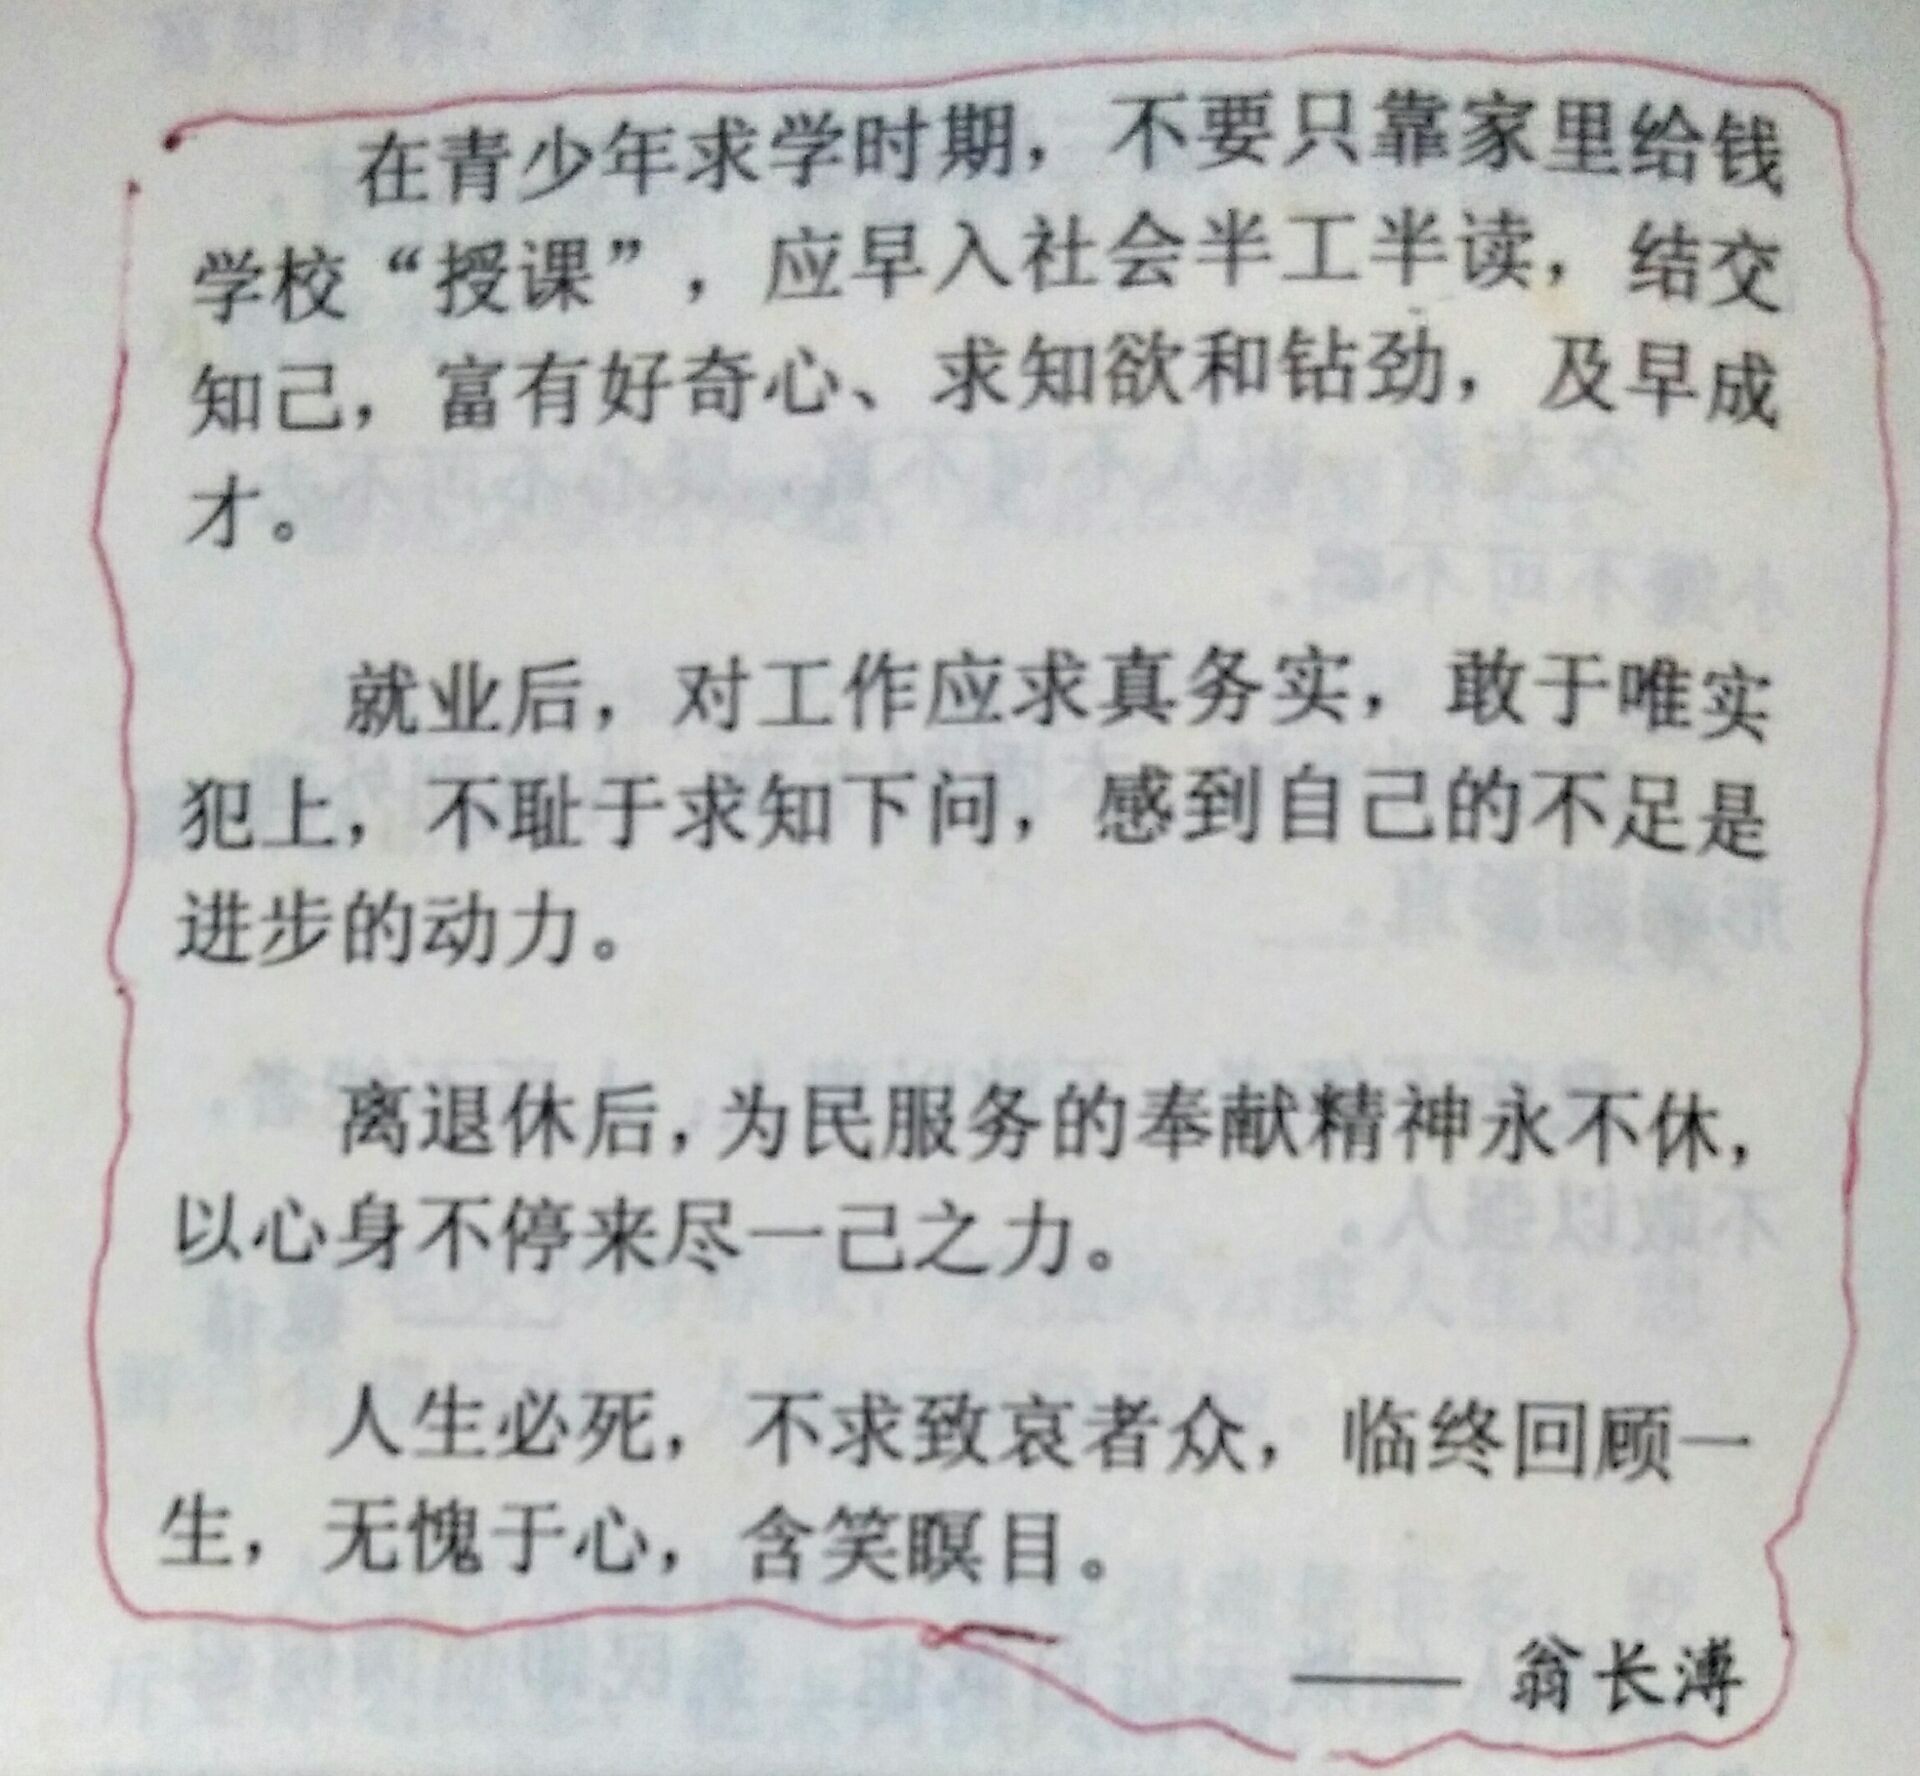 在青少年求学时期，不要只靠家里给钱
学校“授课”，应早入社会半工半读，结交
知己，富有好奇心、求知欲和钻劲，及早成
才。
就业后，对工作应求真务实，敢于唯实
犯上，不耻于求知下问，感到自己的不足是
进步的动力。
离退休后，为民服务的奉献精神永不休，
以心身不停来尽一己之力。
人生必死，不求致哀者众，临终回顾一
生，无愧于心，含笑瞑目。
—— 翁长溥